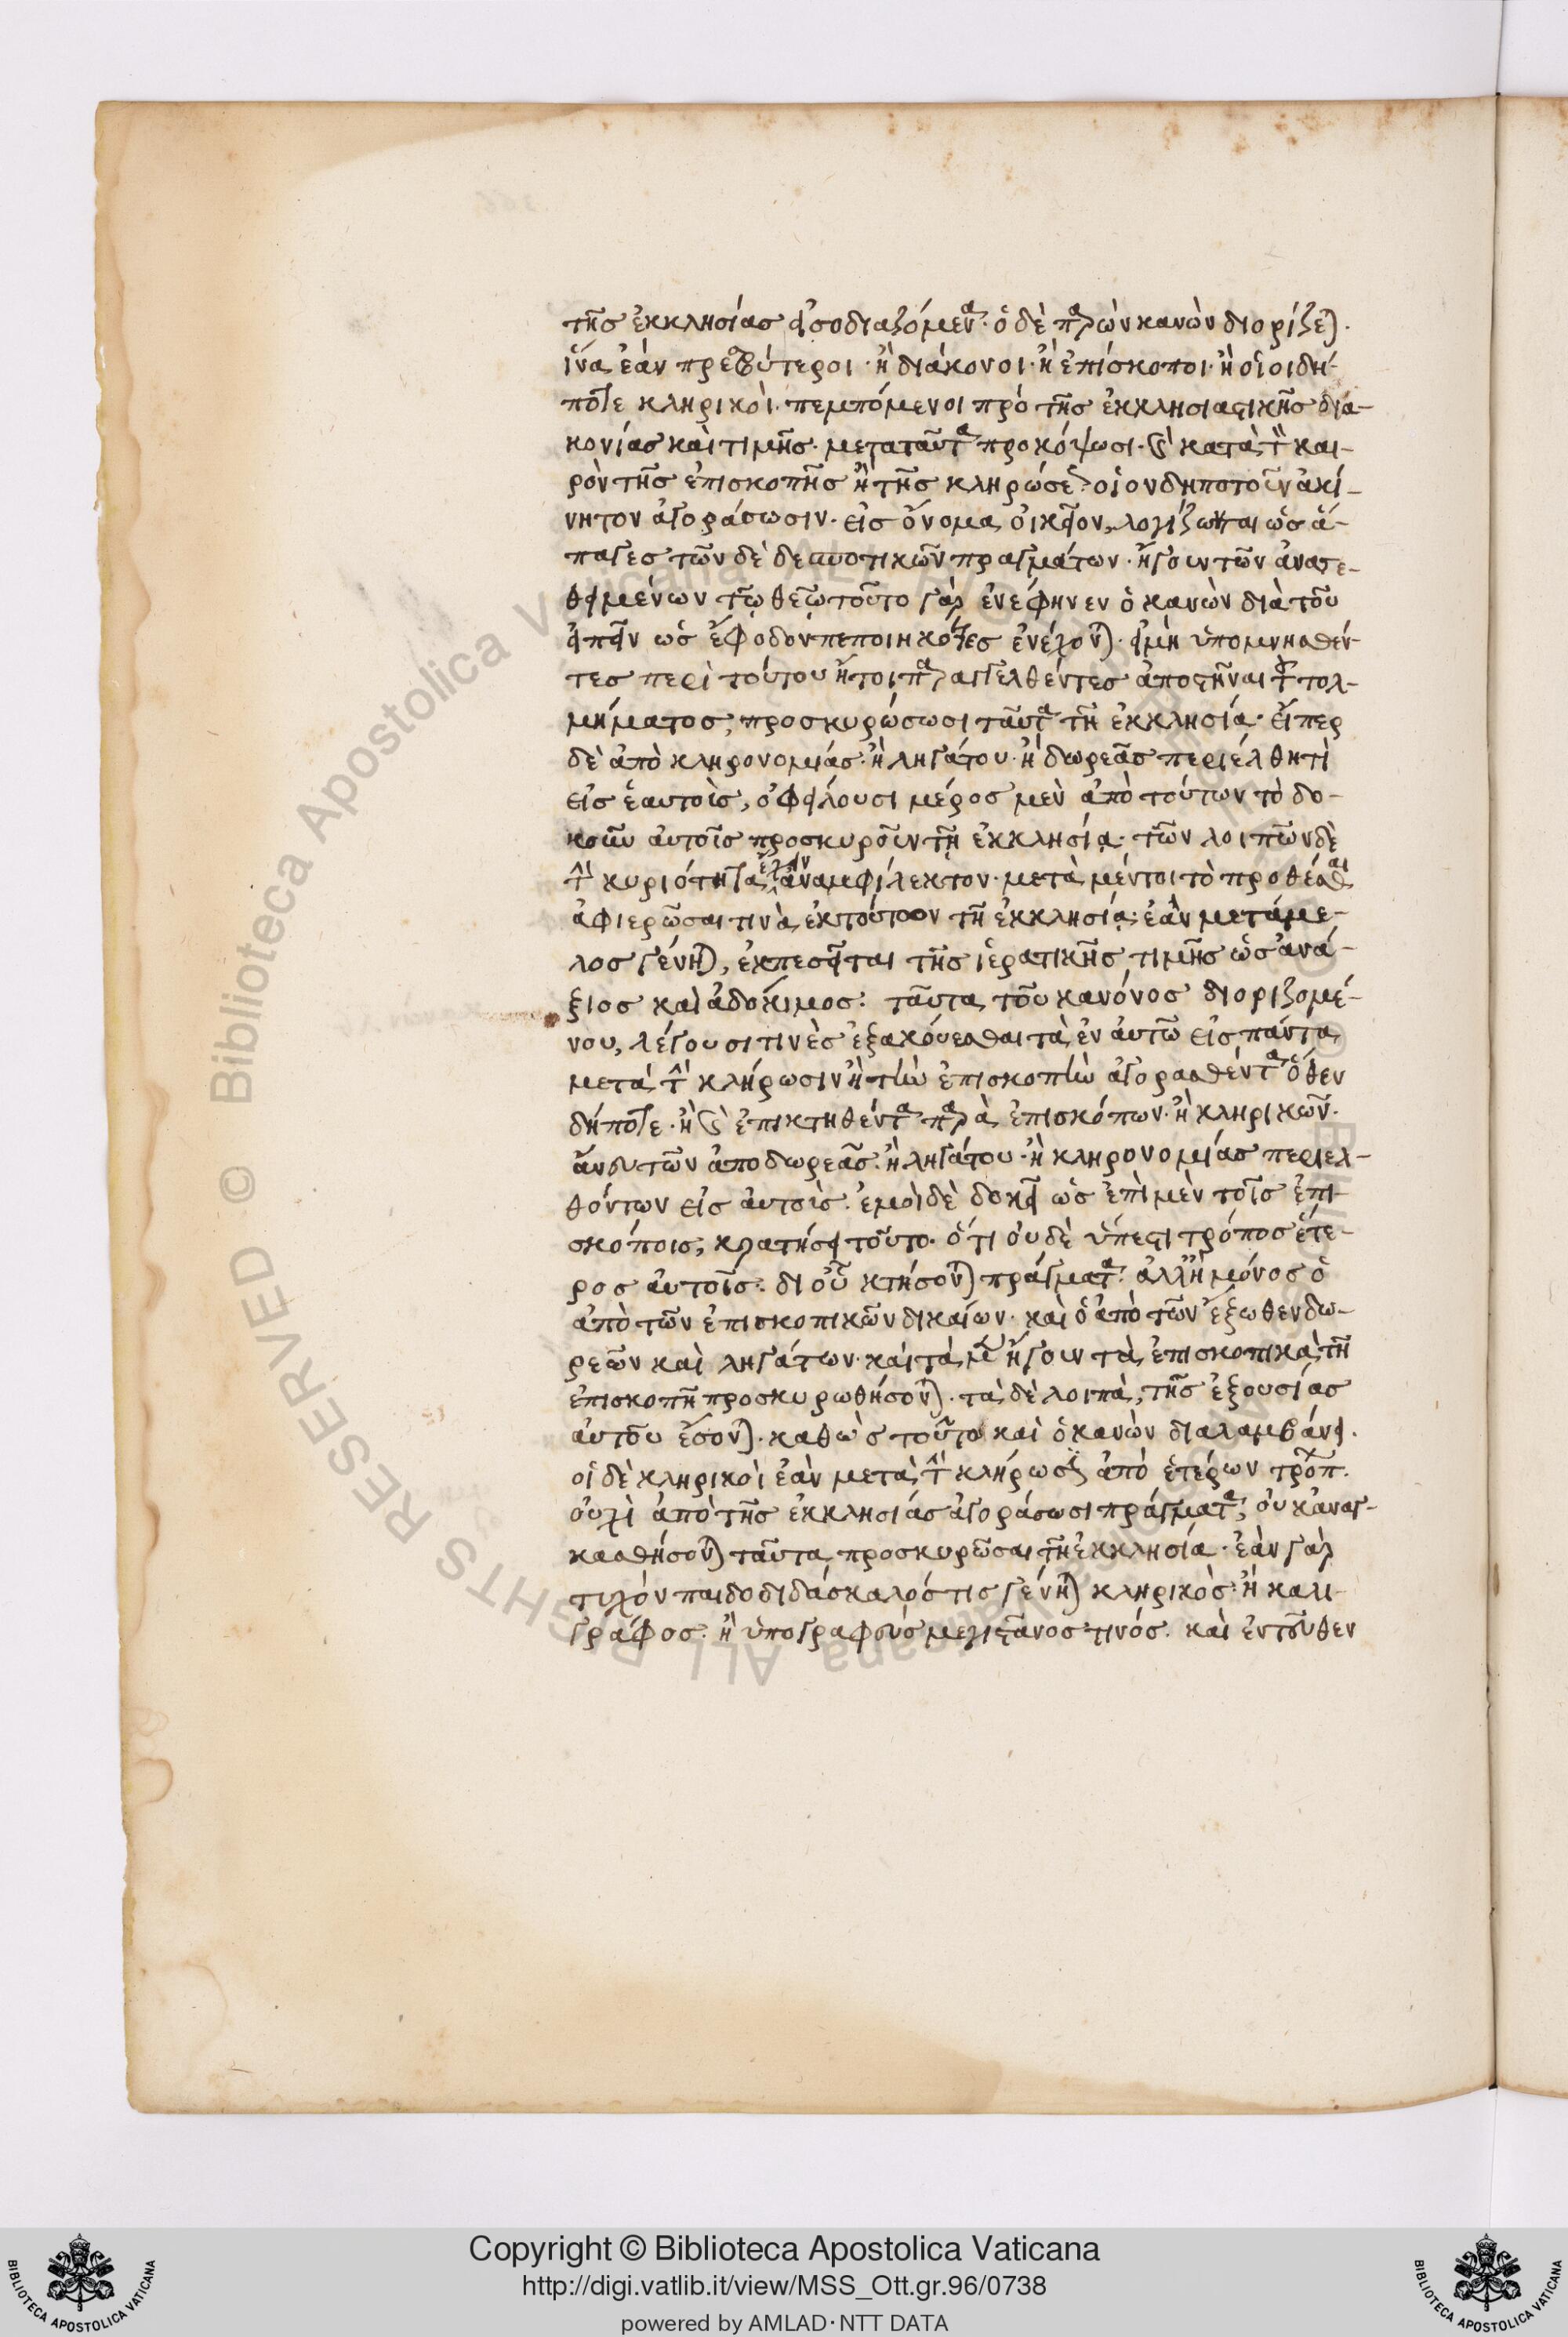 τῆς ἐκκλησίας εἰσοδιαζόμενα· ὁ δὲ παρὼν κανὼν διορίζεται·
ἵνα ἐὰν πρεσβύτεροι· ἢ διάκονοι· ἢ ἐπίσκοποι· ἢ οἱοιδή-
ποτε κληρικοὶ πεμπόμενοι πρὸ τῆς ἐκκλησιαστικῆς δια-
κονίας καὶ τιμῆς· μεταταῦτα προκόψωσι· καὶ κατὰ τὸν και-
ρὸν τῆς ἐπισκοπῆς ἢ τῆς κληρώσεως οἱονδηποτοῦν ἀκί-
νητον ἀγοράσωσιν· εἰς ὄνομα οἰκεῖον, λογίζωνται ὡς ἅ-
παγες τῶν δὲ δεσποτικῶν πραγμάτων· ἤγουν τῶν ἀνατε-
θειμένων τῷ θεῷ τοῦτο γὰρ ἐνέφηνεν ὁ κανὼν διὰ τοῦ
εἰπεῖν ὡς ἔφοδον πεποιηκότες ἐνέχονται· εἰ μὴ ὑπομνησθέν-
τες περὶ τούτου ἤτοι παραγγελθέντες ἀποστῆναι τοῦ τολ-
μήματος, προσκυρώσωσι ταῦτα τῇ ἐκκλησία· εἴπερ
δὲ ἀπὸ κληρονομιάς· ἢ ληγάτου· ἢ δωρεᾶς περιέλθητὶ
εἰς ἑαυτοὶς, ὀφείλουσι μέρος μεν ἀπὸ τούτων τὸ δο-
κοῦν αὐτοῖς προσκυροῦν τῇ ἐκκλησίᾳ· τῶν λοιπῶν δὲ
τὴν κυριότητα ἔχειν ἀναμφίλεκτον· μετὰ μέντοι τὸ προθέσθαι
ἀφιερῶσαι τινὰ ἐκ τούτων τῇ ἐκκλησίᾳ· ἐὰν μετάμε-
λος γένηται, ἐκπεσεῖται τῆς ἱερατικῆς τιμῆς ὡς ἀνά-
ξιος καὶ ἀδοκιμος· ταῦτα τοῦ κανόνος διοριζομέ-
νου, λέγουσι τινὲς ἐξακούεσθαι τὰ ἐν αὐτῷ εἰς πάντα
μετὰ τὴν κλήρωσιν ἢ τὴν ἐπισκοπὴν ἀγορασθέντα ὅθεν
δήποτε· ἢ καὶ ἐπικτηθέντα παρὰ ἐπισκόπων· ἢ κληρικῶν·
ἄνευ τῶν ἀπο δωρεᾶς· ἢ ληγάτου· ἢ κληρονομίας περιελ-
θόντων εἰς αὐτοὶς· ἐμοὶ δὲ δοκεῖ ὡς ἐπὶ μὲν τοῖς ἐπι-
σκόποις, κρατήσει τοῦτο· ὅτι οὐδὲ ὕπεστι τρόπος ἕτε-
ρος αὐτοῖς· δι οὗ κτήσονται πράγματα· ἀλλ' ἢ μόνος ὁ
ἀπὸ τῶν ἐπισκοπικῶν δικαίων· καὶ ὁ ἀπὸ τῶν ἔξωθεν δω-
ρεῶν καὶ ληγάτων· καὶ τὰ μὲν ἤγουν τὰ ἐπισκοπικὰ τῇ
ἐπισκοπῇ προσκυρωθήσονται· τὰ δὲ λοιπὰ, τῆς ἐξουσίας
αὐτοῦ ἔσονται· καθὼς τοῦτο καὶ ὁ κανὼν διαλαμβάνει.
οἱ δὲ κληρικοὶ ἐὰν μετὰ τὴν κλήρωσιν ἀπὸ ἑτέρων τρόπων
οὐχὶ ἀπὸ τῆς ἐκκλησιάς ἀγοράσωσι πράγματα, οὐκ ἀναγ-
κασθήσονται ταῦτα προσκυρῶσαι τῇ ἐκκλησία· ἐὰν γὰρ
τυχὸν παιδοδιδάσκαλός τις γένηται κληρικὸς· ἢ καλι-
γράφος· ἢ ὑπογραφεὺς μεγιστᾶνος τινός· καὶ ἐντεῦθεν
Copyright © Biblioteca Apostolica Vaticana
http://digi.vatlib.it/view/MSS_Ott.gr.96/0738
powered by AMLAD·NTT DATA